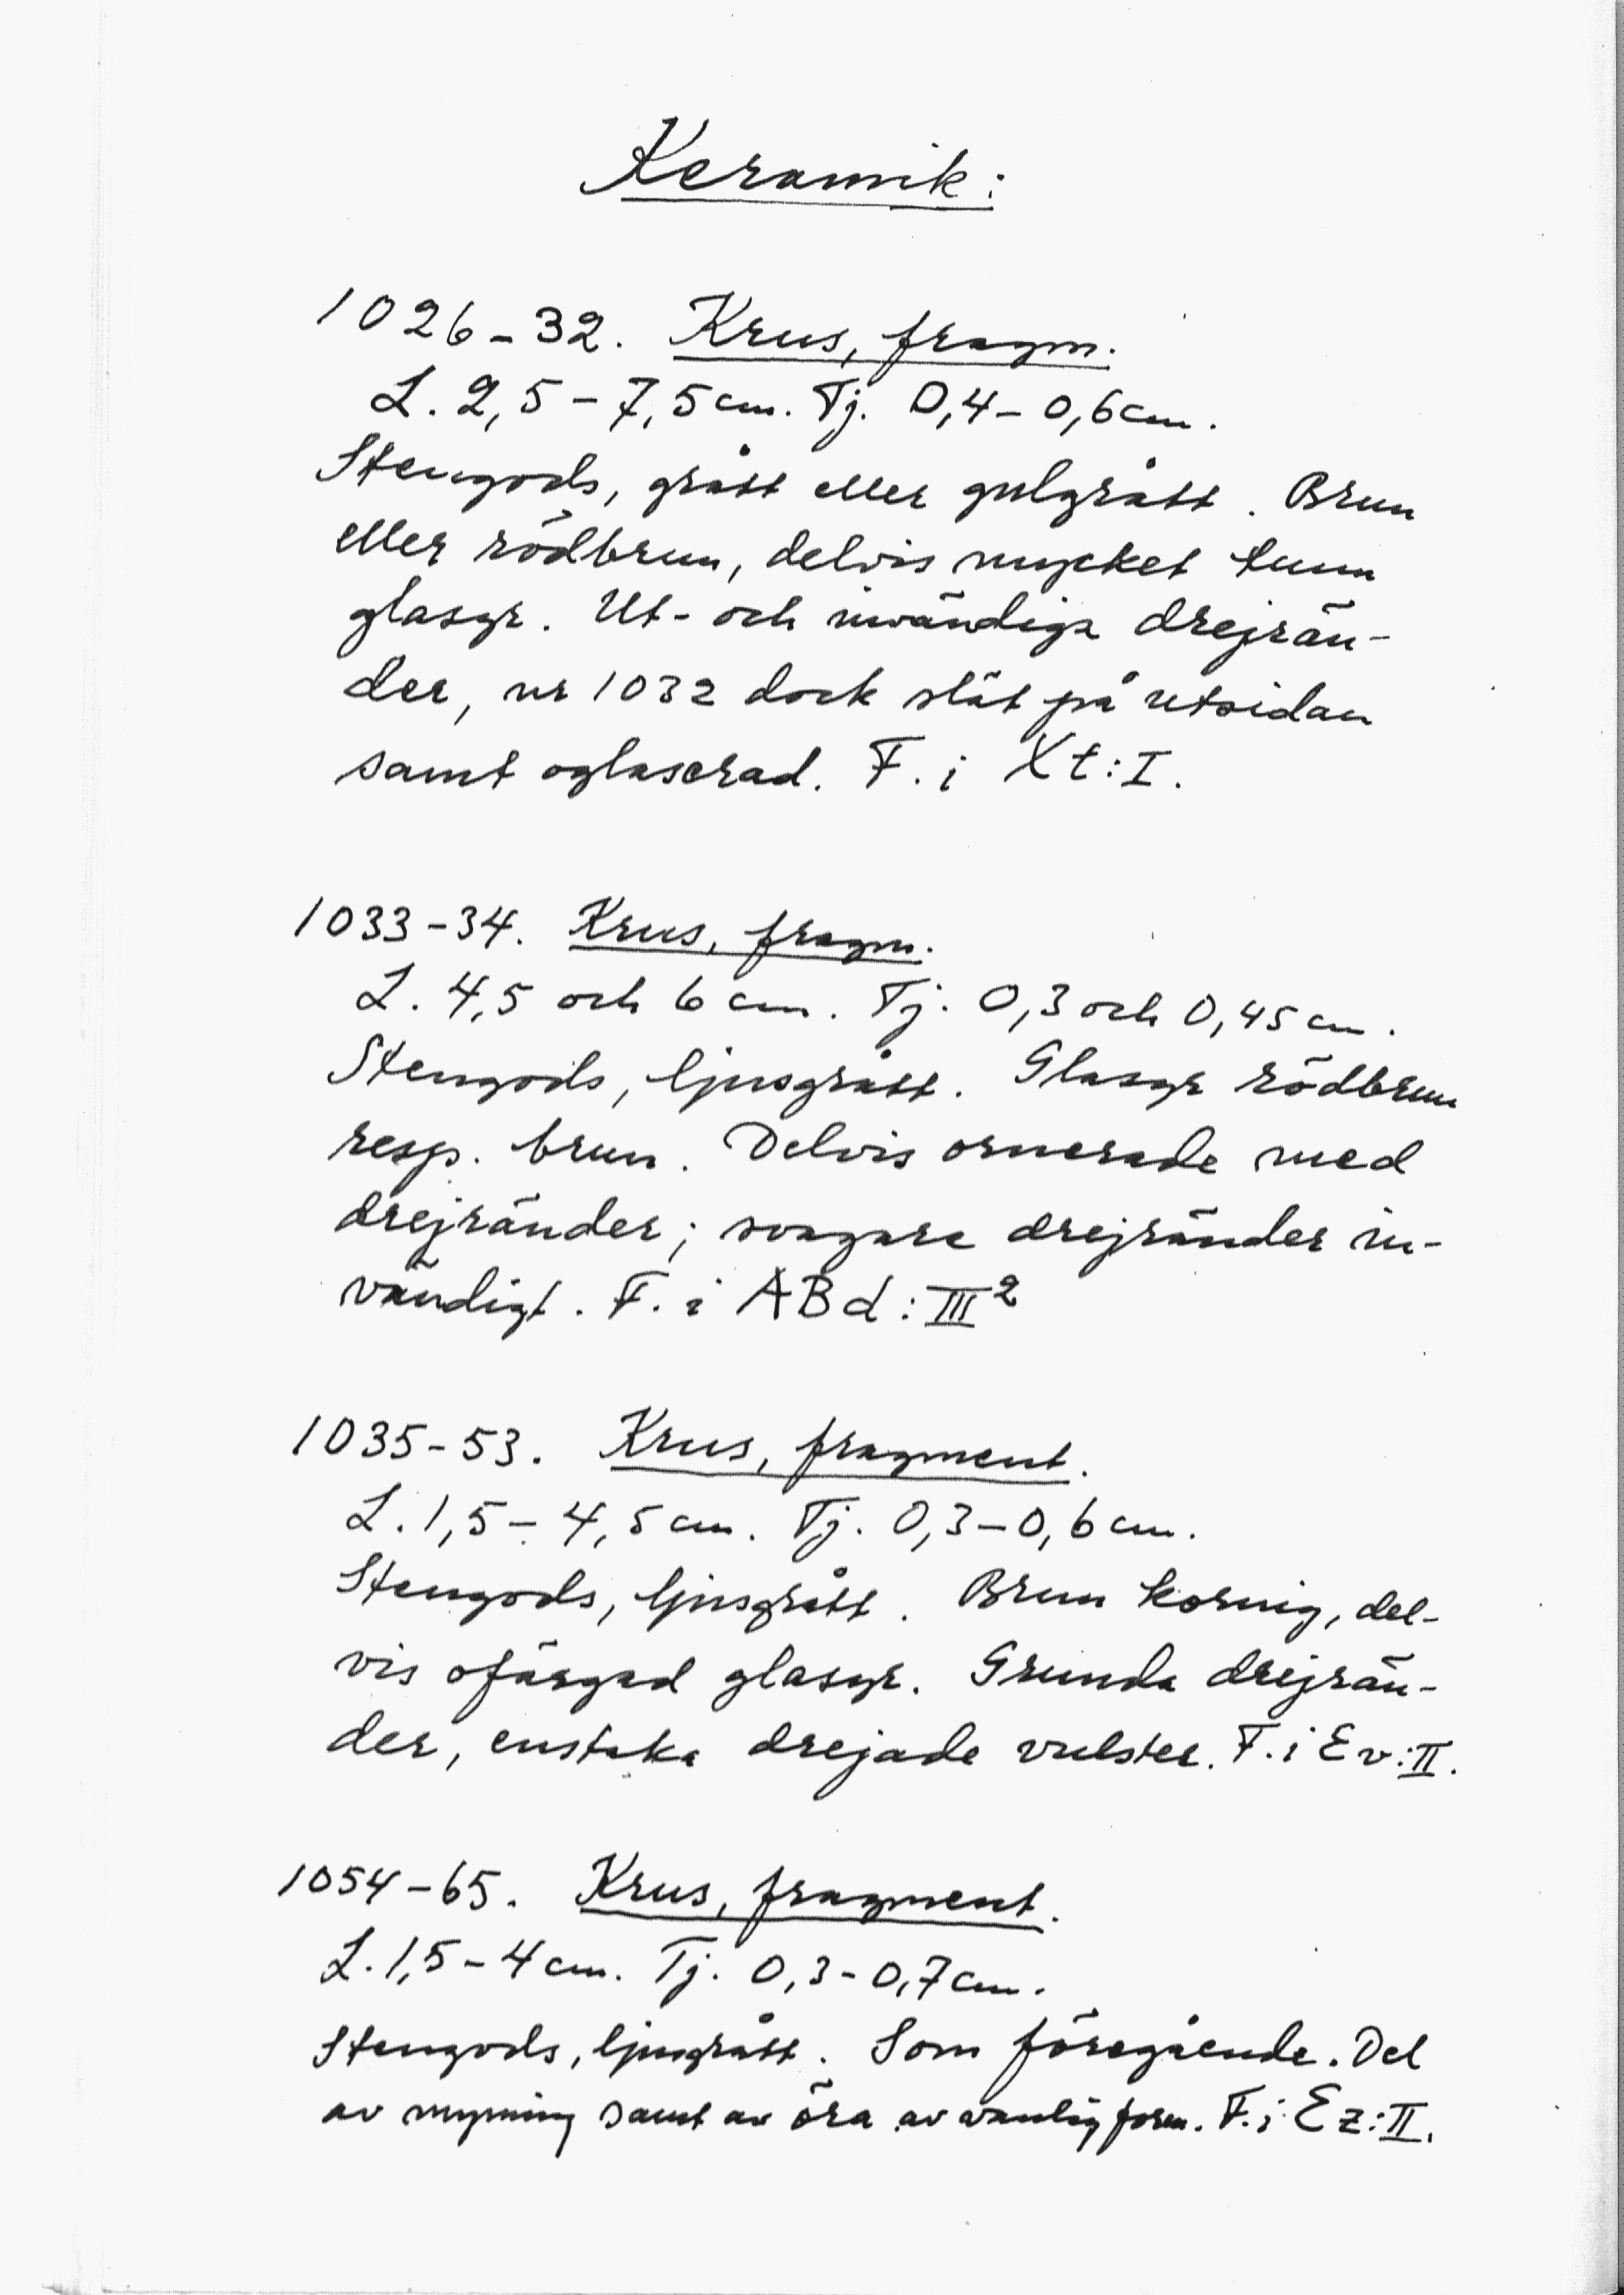 Keramik:
1026-32. Krus, fragm.
L. 2,5-7,5 cm. Tj. 0,4-0,6 cm.
Stengods, grått eller gulgrått. Brun
eller rödbrun, delvis mycket tunn
glasyr. Ut- och invändiga drejrän-
der, nr 1032 dock slät på utsidan
samt oglaserad. F. i Xt:I.
1033-34. Krus, fragm.
L. 4,5 och 6 cm. Tj. 0,3 och 0,45 cm.
Stengods, ljusgrått. Glasyr rödbrun
resp. brun. Delvis ornerade med
drejränder; svagare drejränder in-
vändigt. F. i ABd:III²
1035-53. Krus, fragment.
L. 1,5-4,5 cm. Tj. 0,3-0,6 cm.
Stengods, ljusgrått. Brun kornig, del-
vis ofärgad glasyr. Grunda drejrän-
der, enstaka drejade vulster. F. i Ev:II.
1054-65. Krus, fragment.
L. 1,5-4 cm. Tj. 0,3-0,7 cm.
Stengods, ljusgrått. Som föregående. Del
av mynning samt av öra av vanlig form. F. i Ez:II.